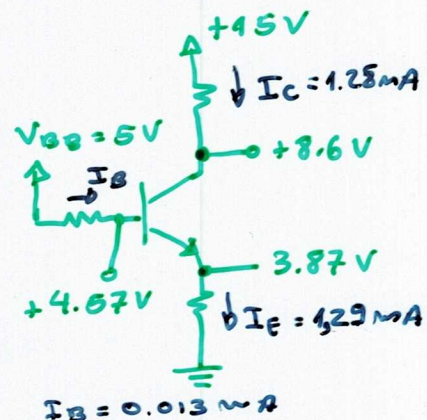 +15V
IC = 1.28mA
VBB = 5V
IB
+8.6V
+4.57V
3.87V
IE = 1,29mA
IB = 0.013mA